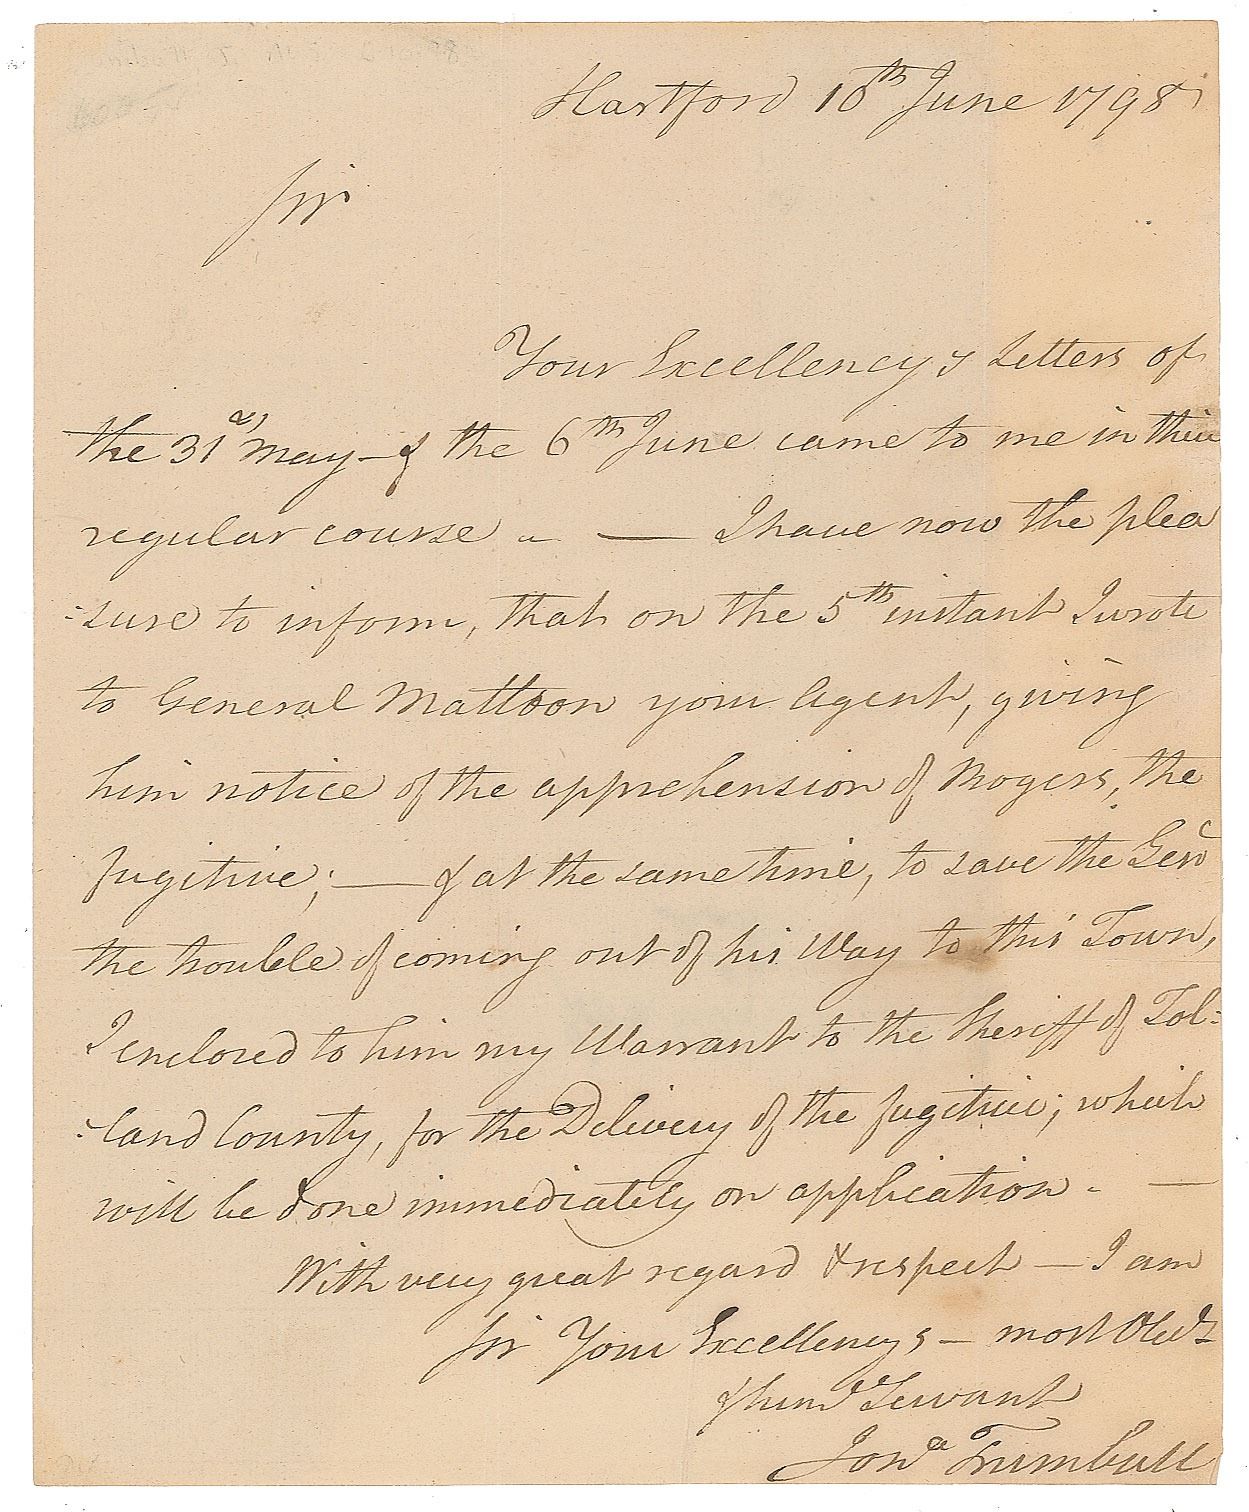 Hartford 10th June 1798
Sir
Your Excellency's Letters of
the 31st May — & the 6th June came to me in their
regular course — I have now the plea
-sure to inform, that on the 5th instant I wrote
to General Mattoon your Agent, giving
him notice of the apprehension of Mogers, the
fugitive; — & at the same time, to save the Genl
the trouble of coming out of his Way to this Town,
I enclosed to him my Warrant to the Sheriff of Tol-
-land County, for the Delivery of the fugitive; which
will be done immediately on application. —
With very great regard & respect — I am
Sir Your Excellencys — most Obedt
& humd Servant
Jona Trumbull